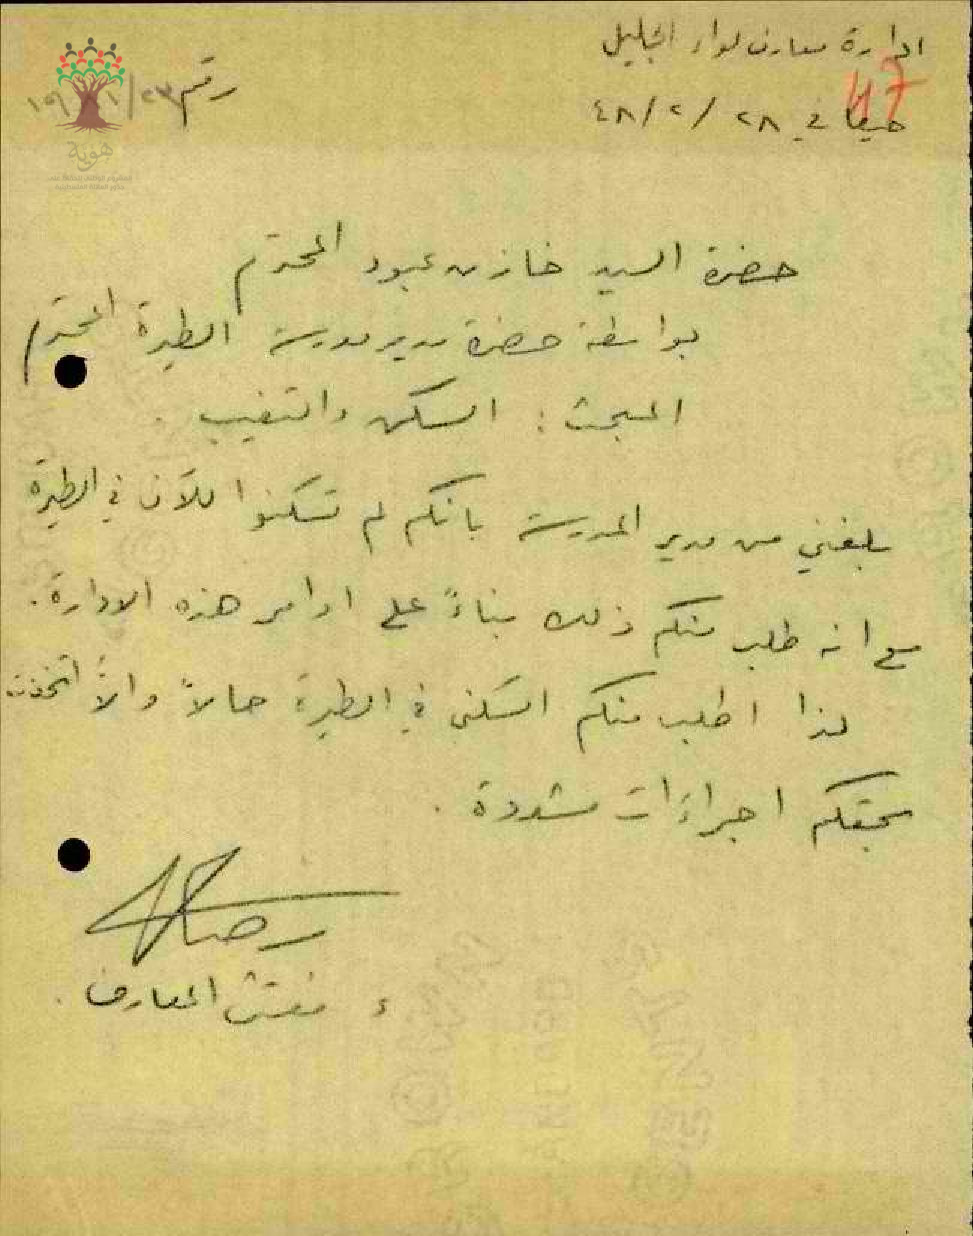 ادارة معارف لواء الجليل
رقم ١٥٩/١/٢٣
47
حيفا في ٢٨/٢/٤٨
هوية
حضرة السيد خازن عبود المحترم
بواسطة حضرة مدير مدرسة الطيرة المحترم
المبحث : السكن والتغيب .
بلغني من مدير المدرسة بانكم لم تسكنوا للآن في الطيرة
مع انه طلب منكم ذلك بناءً على اوامر هذه الادارة .
لذا اطلب منكم السكنى في الطيرة حالاً والاّ اتخذت
بحقكم اجراءات مشددة .
ء مفتش المعارف .